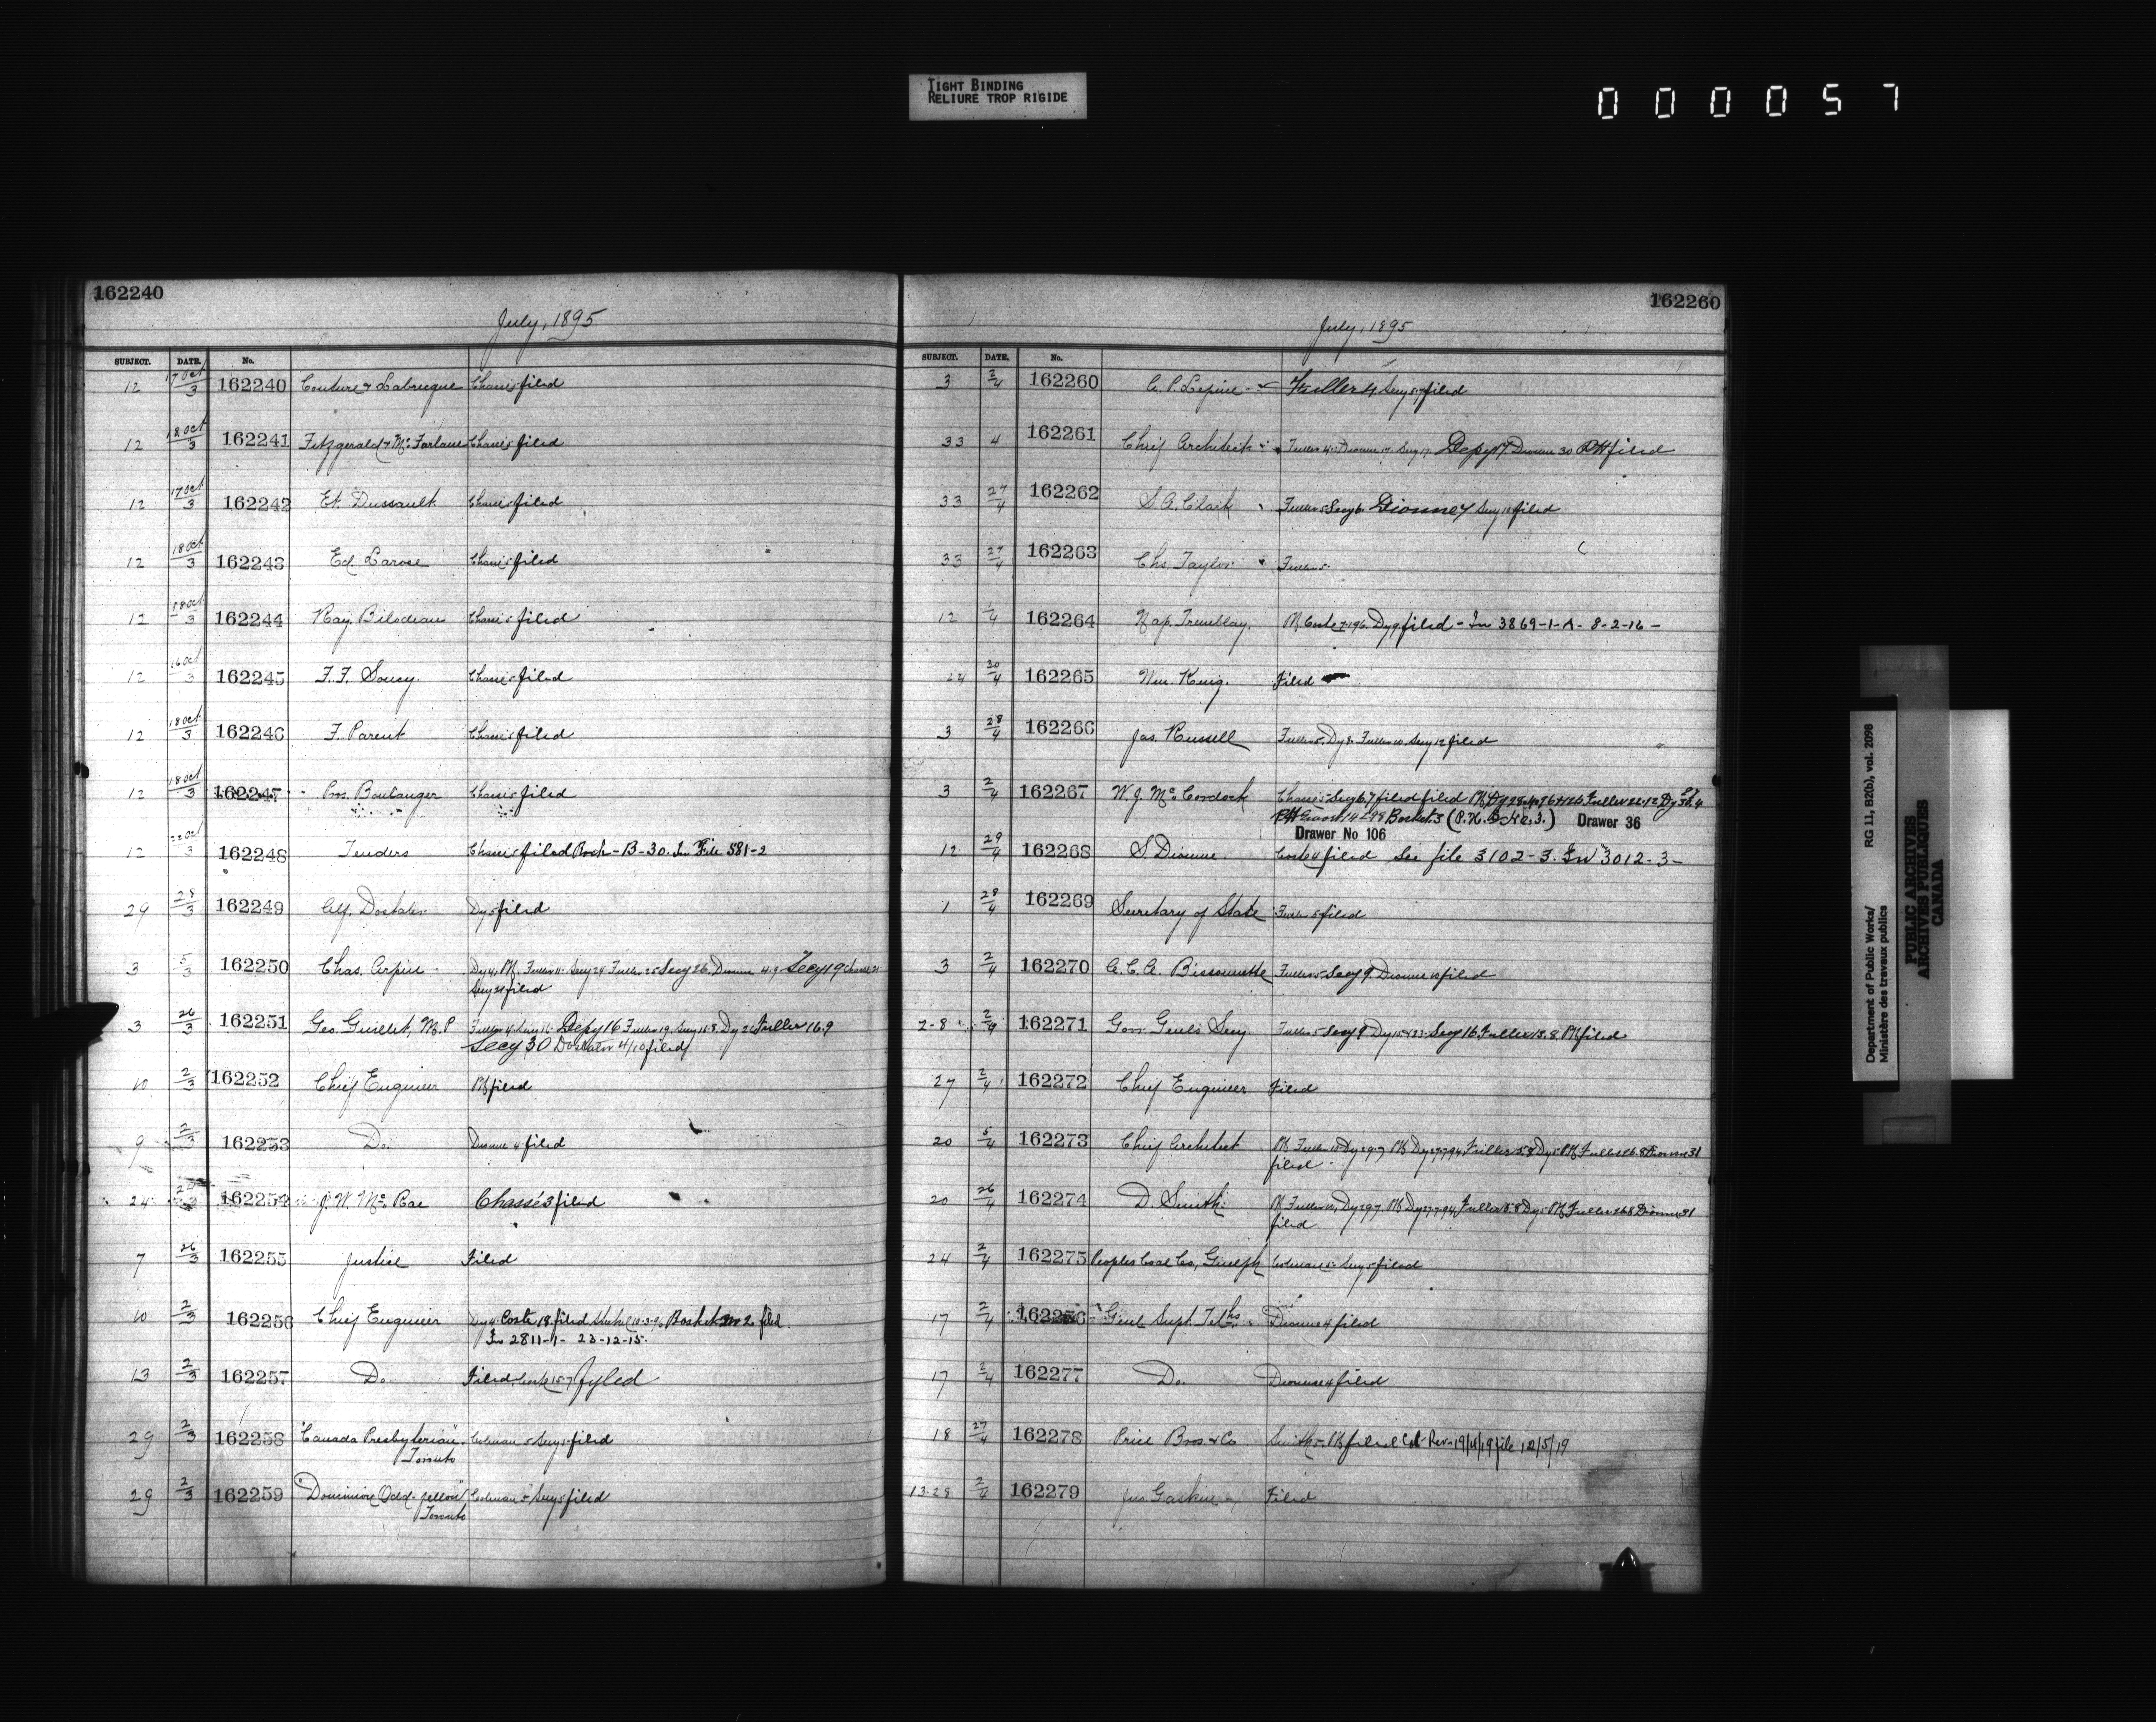 TIGHT BINDING
RELIURE TROP RIGIDE
000057
162240
July, 1895
SUBJECT. DATE. No.
12 17 Oct/3 162240 Couture & Labrecque Chassé 5 filed
12 18 Oct/3 162241 Fitzgerald & McFarlane Chassé 5 filed
12 17 Oct/3 162242 Et. Dussault Chassé 5 filed
12 18 Oct/3 162243 Ed. Larose Chassé 5 filed
12 18 Oct/3 162244 Ray Bilodeau Chassé 5 filed
12 16 Oct/3 162245 F. F. Soucy. Chassé 5 filed
12 18 Oct/3 162246 F. Parent Chassé 5 filed
12 18 Oct/3 162247 Boulanger Chassé 5 filed
12 22 Oct/3 162248 Tenders Chassé 5 filed B-30. In File 581-2
29 28/3 162249 Alf. Dostaler Dy 5 filed
3 5/3 162250 Chas. Arpin Dy 4, Fuller 11 Secy 24 Fuller 25 Secy 26, Dionne 4.9 Secy 19 Chassé 21
Secy 21 filed
3 26/3 162251 Geo. Guillet, M.P Fuller 4 Secy 16 Depy 16 Fuller 19, Secy 16.8, Dy 26 Fuller 16.9
Secy 30 Dostaler 4/10 filed
10 2/3 162252 Chief Engineer filed
9 2/3 162253 Do. Dionne 4 filed
24 162254 J. W. McRae Chassé 3 filed
7 26/3 162255 Justice Filed
10 2/3 162256 Chief Engineer Dy 4 Coste 18 filed Basket No 2 filed.
In 2811-1- 23-12-15.
13 2/3 162257 Do. Filed, Coste 15.7 fyled
29 2/3 162258 "Canada Presbyterian" Coleman 5 Secy 5 filed
Toronto
29 2/3 162259 "Dominion Odd-fellow" Coleman 5 Secy 5 filed
Toronto
162260
July, 1895
SUBJECT. DATE. No.
3 2/4 162260 A. P. Lepine Fuller 4 Secy filed
33 4 162261 Chief Architect Fuller 4 Dionne 17 Secy 17 Depy 17 Dionne 30 filed
33 27/4 162262 S. A. Clark Fuller 5 Secy 6 Dionne 7 Secy 18 filed
33 27/4 162263 Chs. Taylor Fuller 5.
12 1/4 162264 Nap. Tremblay. Coste Dy 9 filed - In 3869-1-A- 8-2-16-
24 30/4 162265 Wm. King. Filed
3 28/4 162266 Jas. Russell Fuller 5, Dy 9. Fuller 10 Secy 12 filed
3 2/4 162267 W. J. McCordock Chassé 5 Secy 6.7 filed filed Fuller 22.12 Dy
Basket 3 (P.H. B No. 3.) Drawer 36
Drawer No 106
12 29/4 162268 S. Dionne. Coste 4 filed See file 3102-3. In 3012-3-
1 28/4 162269 Secretary of State Fuller 5 filed
3 2/4 162270 A. C. A. Bissonnette Fuller 5 Secy 9. Dionne 10 filed
2-8 2/4 162271 Gov. Genls Secy Fuller 5 Secy 9 Dy Secy 16 Fuller 13.8 filed
27 2/4 162272 Chief Engineer Filed
20 5/4 162273 Chief Architect Fuller 15 Dy 29.7 Dy Fuller 5.8 Dy 5 Fuller 26.8 Dionne 31
filed
20 26/4 162274 D. Smith. Fuller Dy 29.7 Dy Fuller 5.8 Dy 5 Fuller 26.8 Dionne 31
filed
24 2/4 162275 Peoples Coal Co., Guelph Coleman 5 Secy 5 filed
17 2/4 162276 Genl. Supt. Telhs. Dionne 4 filed
17 2/4 162277 Do. Dionne 4 filed
18 27/4 162278 Price Bros & Co Smith 5. filed Col. Rev. 19/4/19 file 12/5/19
13.28 2/4 162279 Jno Gaskin Filed
Department of Public Works/
Ministère des travaux publics
RG 11, B2(b), vol. 2098
PUBLIC ARCHIVES
ARCHIVES PUBLIQUES
CANADA